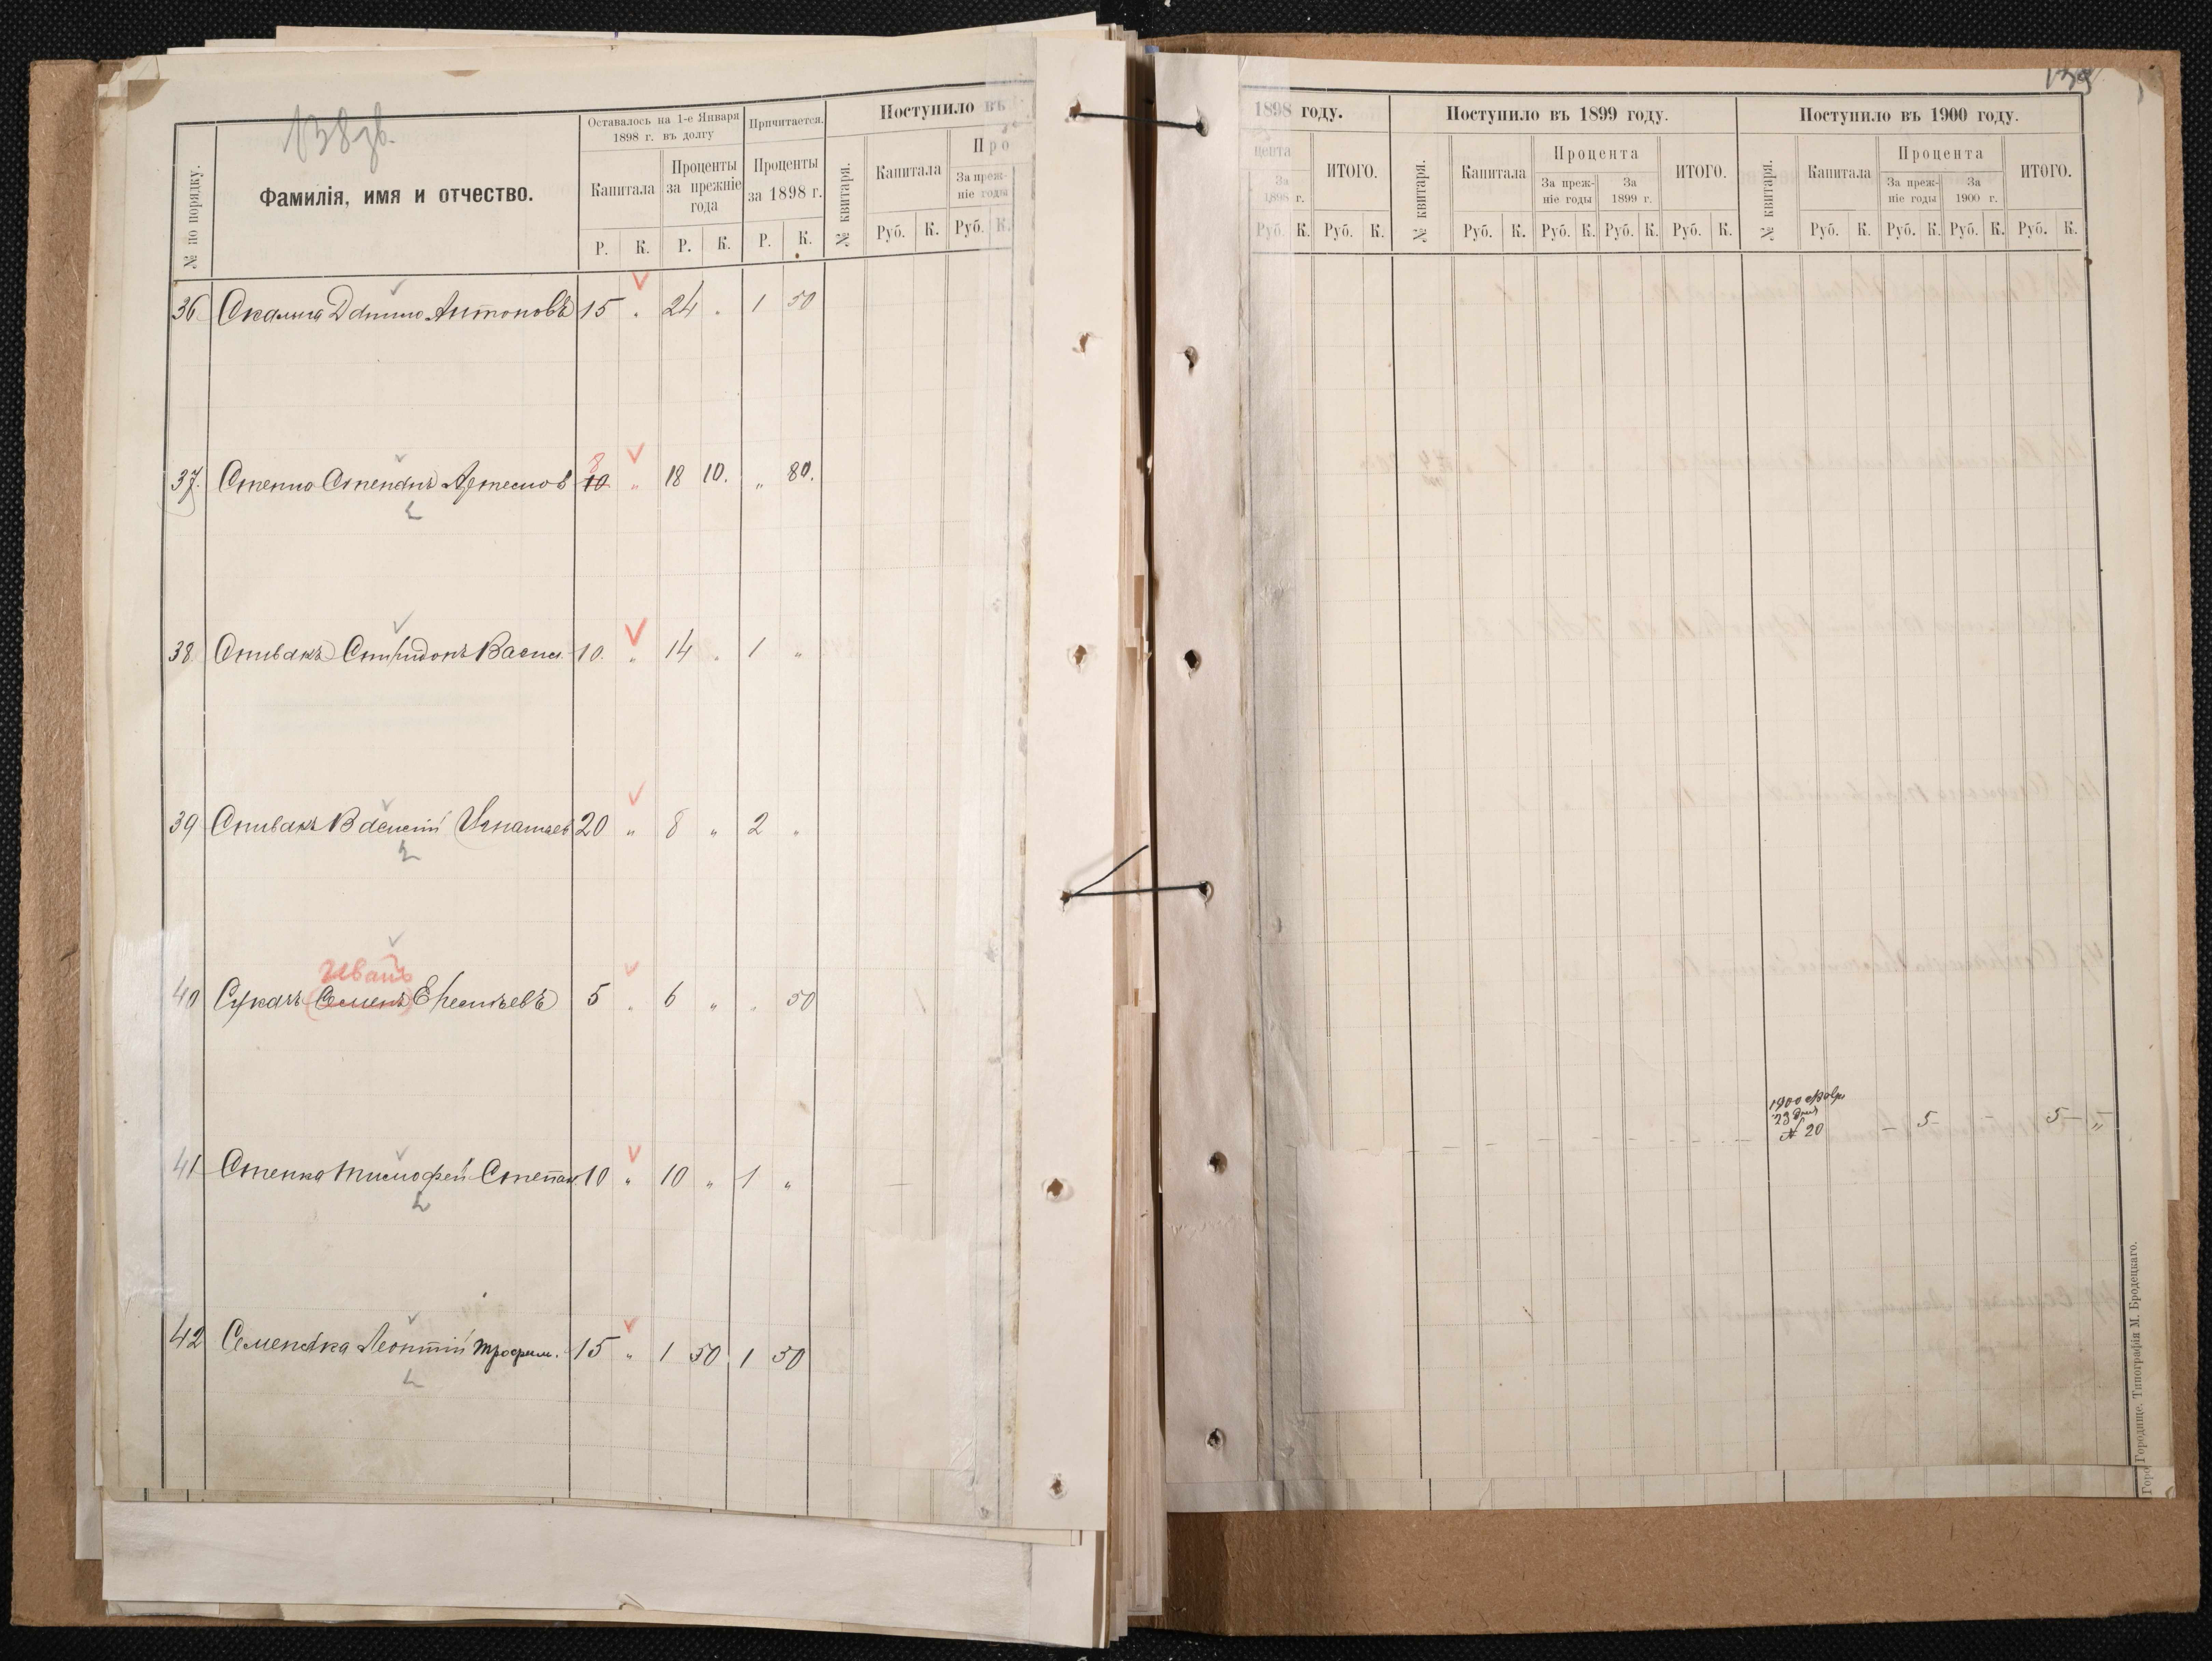 138 зв.
139
№ по порядку.
Фамилія, имя и отчество.
Оставалось на 1-е Января 1898 г. въ долгу
Капитала
Проценты за прежніе года
Р. К. Р. К.
Причитается.
Проценты за 1898 г.
Р. К.
Поступило въ
№ квитаря.
Капитала
Про
За преж-
ніе годы
Руб. К. Руб. К.
1898 году.
цента
За
1898 г.
ИТОГО.
Руб. К. Руб. К.
Поступило въ 1899 году.
№ квитаря.
Капитала
Процента
За преж-
ніе годы
За
1899 г.
ИТОГО.
Руб. К. Руб. К. Руб. К. Руб. К.
Поступило въ 1900 году.
№ квитаря.
Капитала
Процента
За преж-
ніе годы
За
1900 г.
ИТОГО.
Руб. К. Руб. К. Руб. К. Руб. К.
36 Антоновъ 15 „ 24 „ 1 50
8
37. 10 „ 18 10. „ 80.
38 Спивакъ Спиридонъ Васил. 10. „ 14 „ 1 „
39 Спивакъ Василій Игнатьев 20 „ 8 „ 2 „
Иванъ
40 Сукачъ Семенъ 5 „ 6 „ „ 50
41 Стенка Тимофей Степан. 10 „ 10 „ 1 „
1900
23 дня
№ 20 – 5 – 5 – „
42 Семенька Леонтій Трофим. 15 „ 1 50 1 50
Городище. Типографія М. Бродецкаго.
Горо